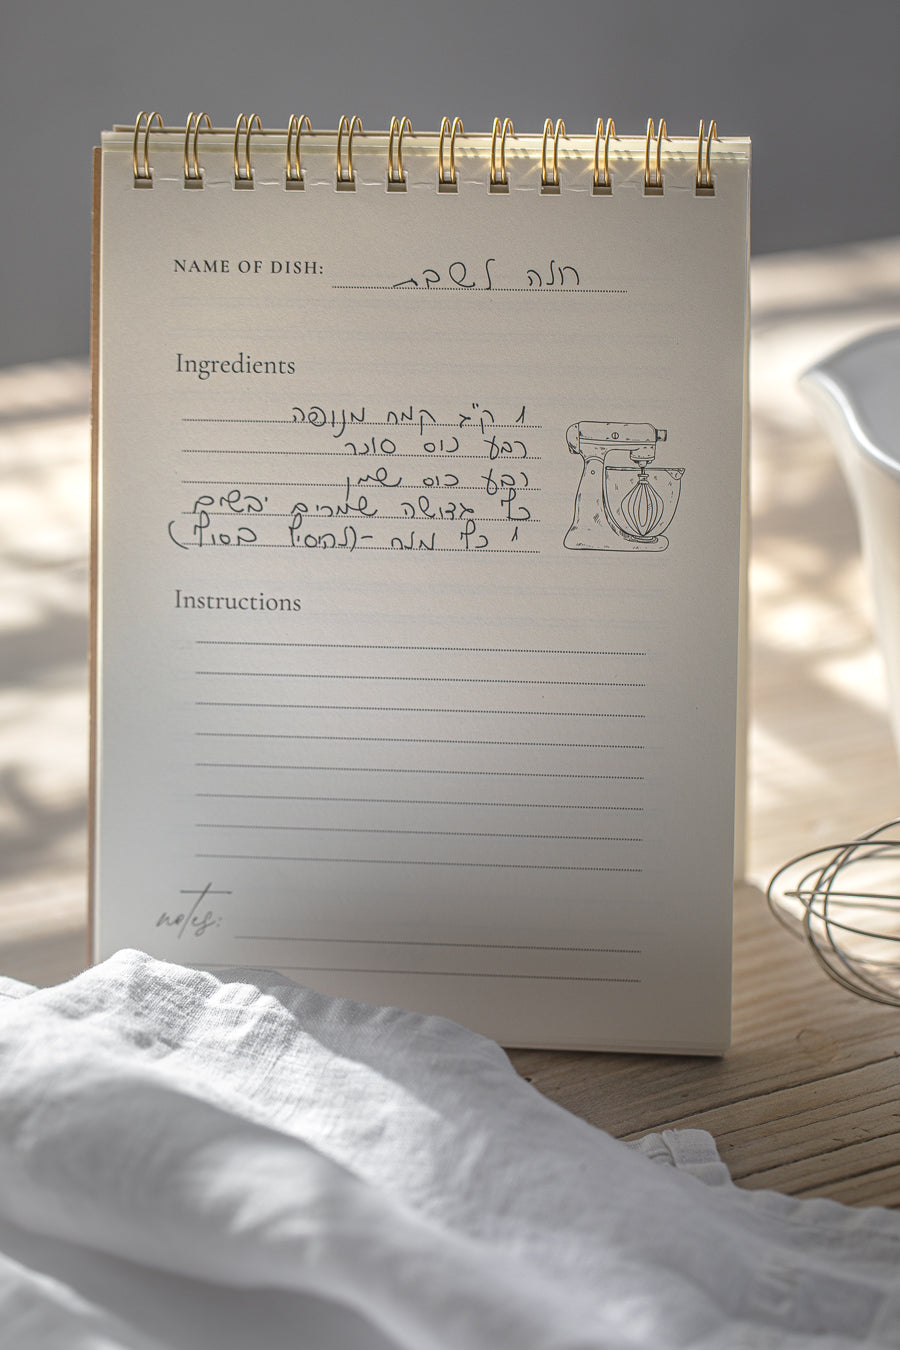 NAME OF DISH: חלה לשבת
Ingredients
1 ק"ג קמח מנופה
רבע כוס סוכר
רבע כוס שמן
כף גדושה שמרים יבשים
1 כף מלח - (להוסיף בסוף)
Instructions
notes: